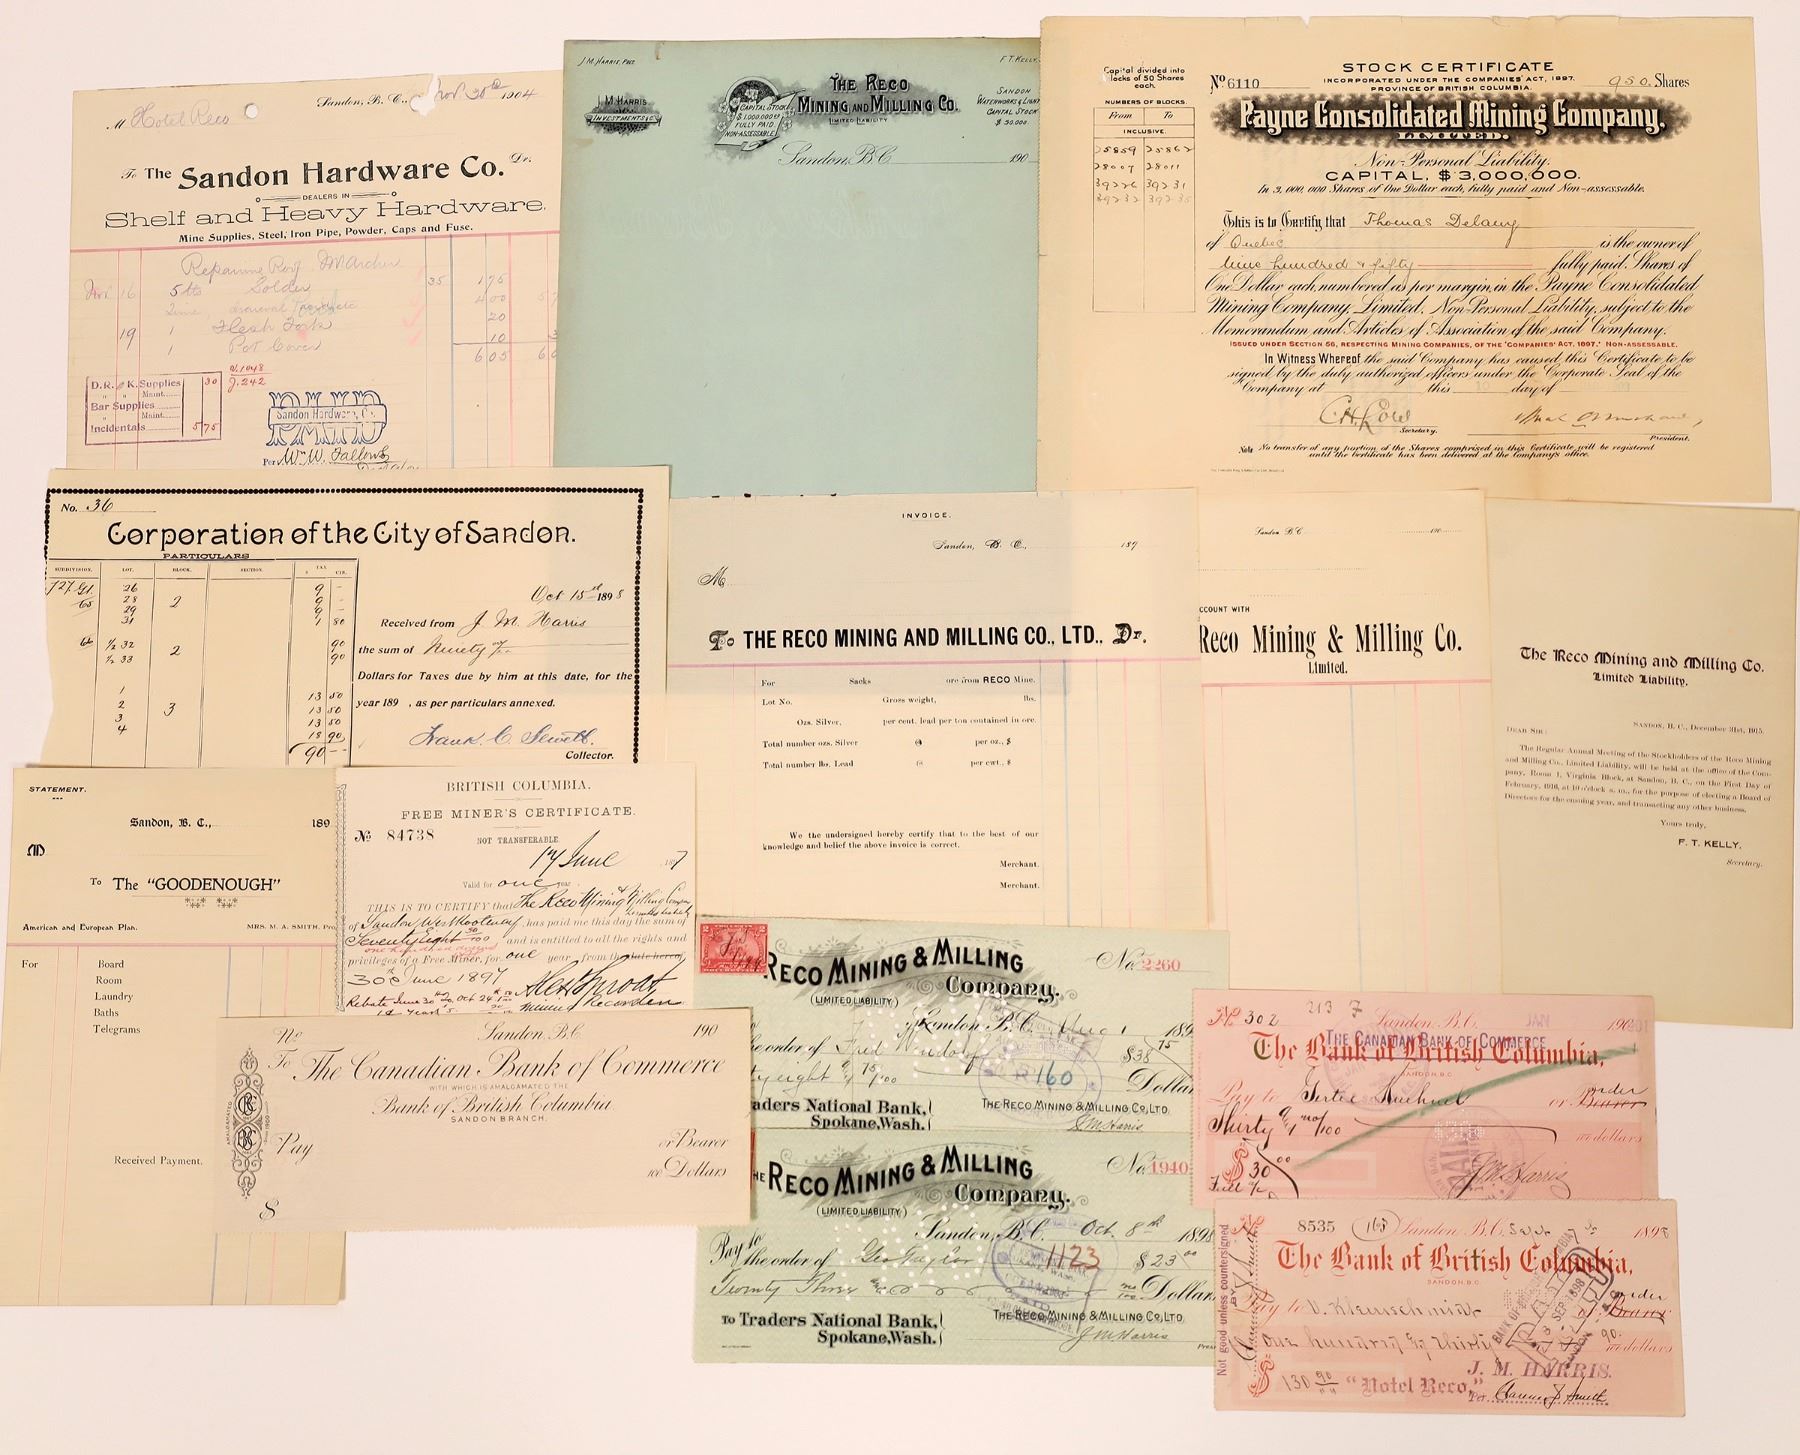 Sandon, B. C., Nov 30th 1904
M Hotel Reco
To The Sandon Hardware Co. Dr.
DEALERS IN
Shelf and Heavy Hardware.
Mine Supplies, Steel, Iron Pipe, Powder, Caps and Fuse.
Nov 16 5 lbs Solder 35 1 75
4 00
20
19 1 Flesh Fork 10
1 Pot Cover 6 05
J. 242
D. R. & K. Supplies 30
" " Maint.
Bar Supplies
" Maint.
Incidentals 5 75
PAID
Sandon Hardware, Co.
Per Wm W. Fallows
J. M. HARRIS, PRES.
F. T. KELLY,
J. M. HARRIS
INVESTMENTS &C.
CAPITAL STOCK
$1,000,000.00
FULLY PAID
NON-ASSESSABLE
THE RECO
MINING AND MILLING CO.
LIMITED LIABILITY
SANDON
WATERWORKS & LIGHT
CAPITAL STOCK
$ 50,000.
Sandon, B.C. 190
Capital divided into
blocks of 50 Shares
each.
NUMBERS OF BLOCKS.
From To
INCLUSIVE.
25859 25862
28007 28011
39226 39231
39232 39235
STOCK CERTIFICATE
No 6110 INCORPORATED UNDER THE COMPANIES' ACT, 1897. 950. Shares
PROVINCE OF BRITISH COLUMBIA.
Payne Consolidated Mining Company,
LIMITED.
Non-Personal Liability.
CAPITAL, $3,000,000.
In 3,000,000 Shares of One Dollar each, fully paid and Non-assessable.
This is to Certify that Thomas Delany
of Quebec is the owner of
nine hundred & fifty fully paid Shares of
One Dollar each, numbered as per margin, in the Payne Consolidated
Mining Company, Limited, Non-Personal Liability, subject to the
Memorandum and Articles of Association of the said Company.
ISSUED UNDER SECTION 56, RESPECTING MINING COMPANIES, OF THE 'COMPANIES' ACT, 1897.' NON-ASSESSABLE.
In Witness Whereof the said Company has caused this Certificate to be
signed by the duly authorized officers under the Corporate Seal of the
Company at this day of
C. H. Low
Secretary.
President.
Note No transfer of any portion of the Shares comprised in this Certificate will be registered
until the Certificate has been delivered at the Company's office.
No. 36
Corporation of the City of Sandon.
PARTICULARS
SUBDIVISION. LOT. BLOCK. SECTION. TAX
$ CTS.
26 9 -
28 2 9 -
29 9 -
31 1 80
1/2 32 2 90
1/2 33 90
1 13 50
2 3 13 50
3 13 50
4 18 90
90 - -
Oct 15th 1898
Received from J. M. Harris
the sum of Ninety
Dollars for Taxes due by him at this date, for the
year 189 , as per particulars annexed.
Frank C. Sewell.
Collector.
INVOICE.
Sandon, B. C., 189
M
To THE RECO MINING AND MILLING CO., LTD., Dr.
For Sacks ore from RECO Mine.
Lot No. Gross weight, lbs.
Ozs. Silver, per cent. lead per ton contained in ore.
Total number ozs. Silver @ per oz., $
Total number lbs. Lead @ per cwt., $
We the undersigned hereby certify that to the best of our
knowledge and belief the above invoice is correct.
Merchant.
Merchant.
Sandon B.C. 190
CCOUNT WITH
Reco Mining & Milling Co.
Limited.
The Reco Mining and Milling Co.
Limited Liability.
SANDON, B. C., December 31st, 1915.
DEAR SIR:
The Regular Annual Meeting of the Stockholders of the Reco Mining
and Milling Co., Limited Liability, will be held at the office of the Com-
pany, Room 1, Virginia Block, at Sandon, B. C., on the First Day of
February, 1916, at 10 o'clock a. m., for the purpose of electing a Board of
Directors for the ensuing year, and transacting any other business.
Yours truly,
F. T. KELLY,
Secretary.
STATEMENT.
Sandon, B. C., 189
M
To The "GOODENOUGH"
American and European Plan. MRS. M. A. SMITH, Pro
For Board
Room
Laundry
Baths
Telegrams
Received Payment.
BRITISH COLUMBIA.
FREE MINER'S CERTIFICATE.
No 84738
NOT TRANSFERABLE
17 June 1897
Valid for one year
THIS IS TO CERTIFY that The Reco Mining & Milling Company
Limited Liability
of Sandon West Kootenay, has paid me this day the sum of
Seventy Eight 50/100 and is entitled to all the rights and
privileges of a Free Miner, for one year, from the date hereof
30th June 1897
Alex Sproat
Mining Recorder
No Sandon, B.C. 190
To The Canadian Bank of Commerce
WITH WHICH IS AMALGAMATED THE
Bank of British Columbia
SANDON BRANCH.
AMALGAMATED
Pay or Bearer
100 Dollars
$
RECO MINING & MILLING
Company.
(LIMITED LIABILITY)
No. 2260
Sandon B.C. Aug 1 189
the order of Fred $38 75
ty eight 75/100 Dollar
R160
aders National Bank,
Spokane, Wash.
THE RECO MINING & MILLING CO, LTD
J M Harris
THE RECO MINING & MILLING
Company.
(LIMITED LIABILITY)
No. 1940
Sandon, B.C. Oct. 8th 1898
Pay to
the order of Geo Naylor $23 00
Twenty Three Dollar
1123
To Traders National Bank,
Spokane, Wash.
THE RECO MINING & MILLING CO, LTD
J M Harris
No 302 Sandon, B.C. JAN 190
THE CANADIAN BANK OF COMMERCE
The Bank of British Columbia,
SANDON B.C.
Pay to or Order
Bearer
Thirty & no/100 100 dollars
$ 30 00
J M Harris
No 8535 163 Sandon, B.C. 1898
The Bank of British Columbia,
SANDON B.C.
Not good unless countersigned
BY
Pay to V. Kleinschmidt or order
One hundred & Thirty 90 100 dollars
$ 130 90 "Hotel Reco,"
J. M. HARRIS.
Per Clarence J Smith